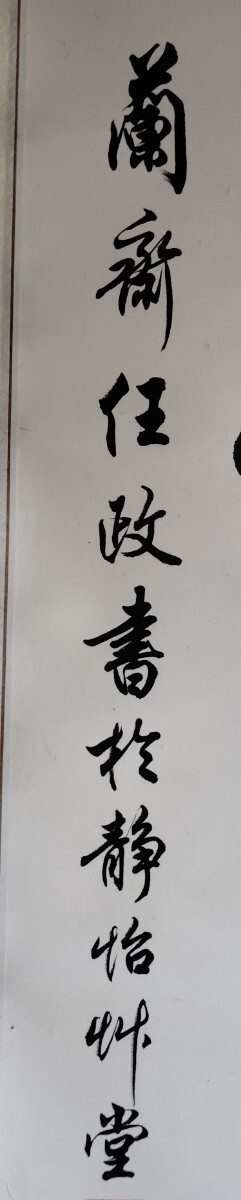 蘭齋任政書於靜怡艸堂